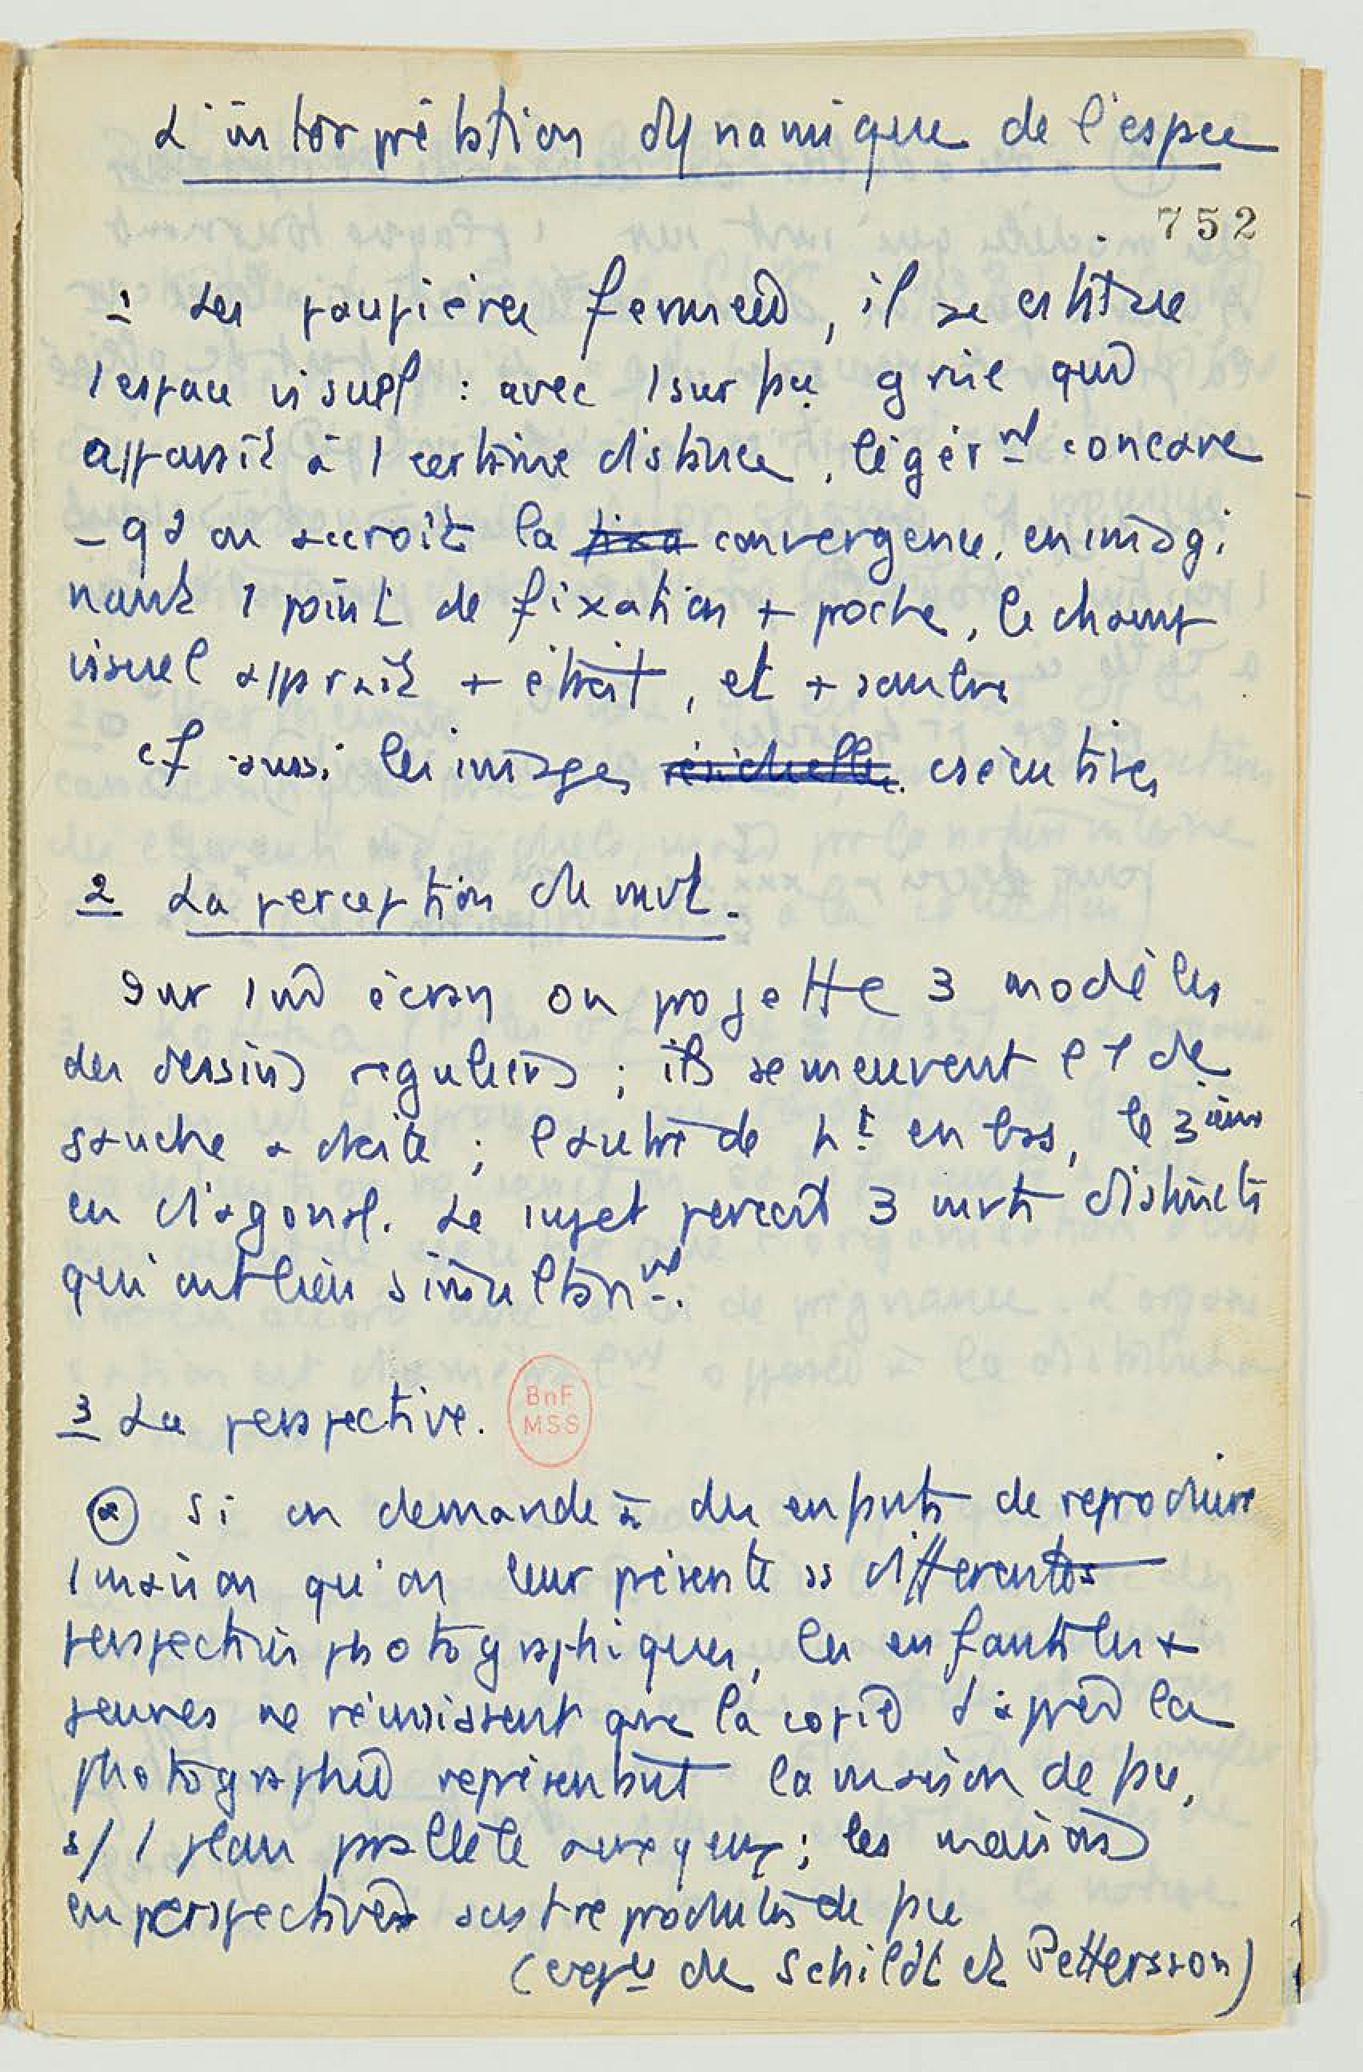 L'interprétation dynamique de l'espace
752
1 Les paupières fermées, il se constitue
1 espace visuel : avec 1 surface grise qui
apparaît à 1 certaine distance, légèrmt concave
- qd on accroit la fixa convergence, en imagi
nant 1 point de fixation + proche, le champ
visuel apparaît + étroit, et + sombre
cf aussi les images consécutives
2 La perception du mvt.
Sur 1 écran on projette 3 modèles
des dessins réguliers ; ils se meuvent l'1 de
gauche à droite ; l'autre de ht en bas, le 3ième
en diagonal. Le sujet perçoit 3 mvts distincts
qui ont lieu simultanmt.
3 La perspective.
BnF
MSS
(a) Si on demande à des enfants de reproduire
1 maison qu'on leur présente ss différentes
perspectives photographiques, les enfants les +
jeunes ne réussissent que la copie d'après la
photographie représentant la maison de face,
s/ 1 plan parallèle aux yeux ; les maisons
en perspective st reproduites de face
(expce de Schildt et Pettersson)